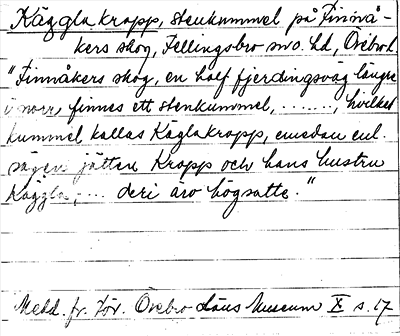 Käggla kropp, stenkummel på Finnå-
kers skog, Fellingsbro sn o. hd, Örebro l.
"Finnåkers skog, en half fjerdingsväg längre
i norr finnes ett stenkummel, ......., hvilket
kummel kallas Käglakropp, emedan enl.
sägen jätten Kropp och hans hustru
Käggla, ... deri äro högsatte."
Medd. fr. För. Örebro Läns Museum X s. 17